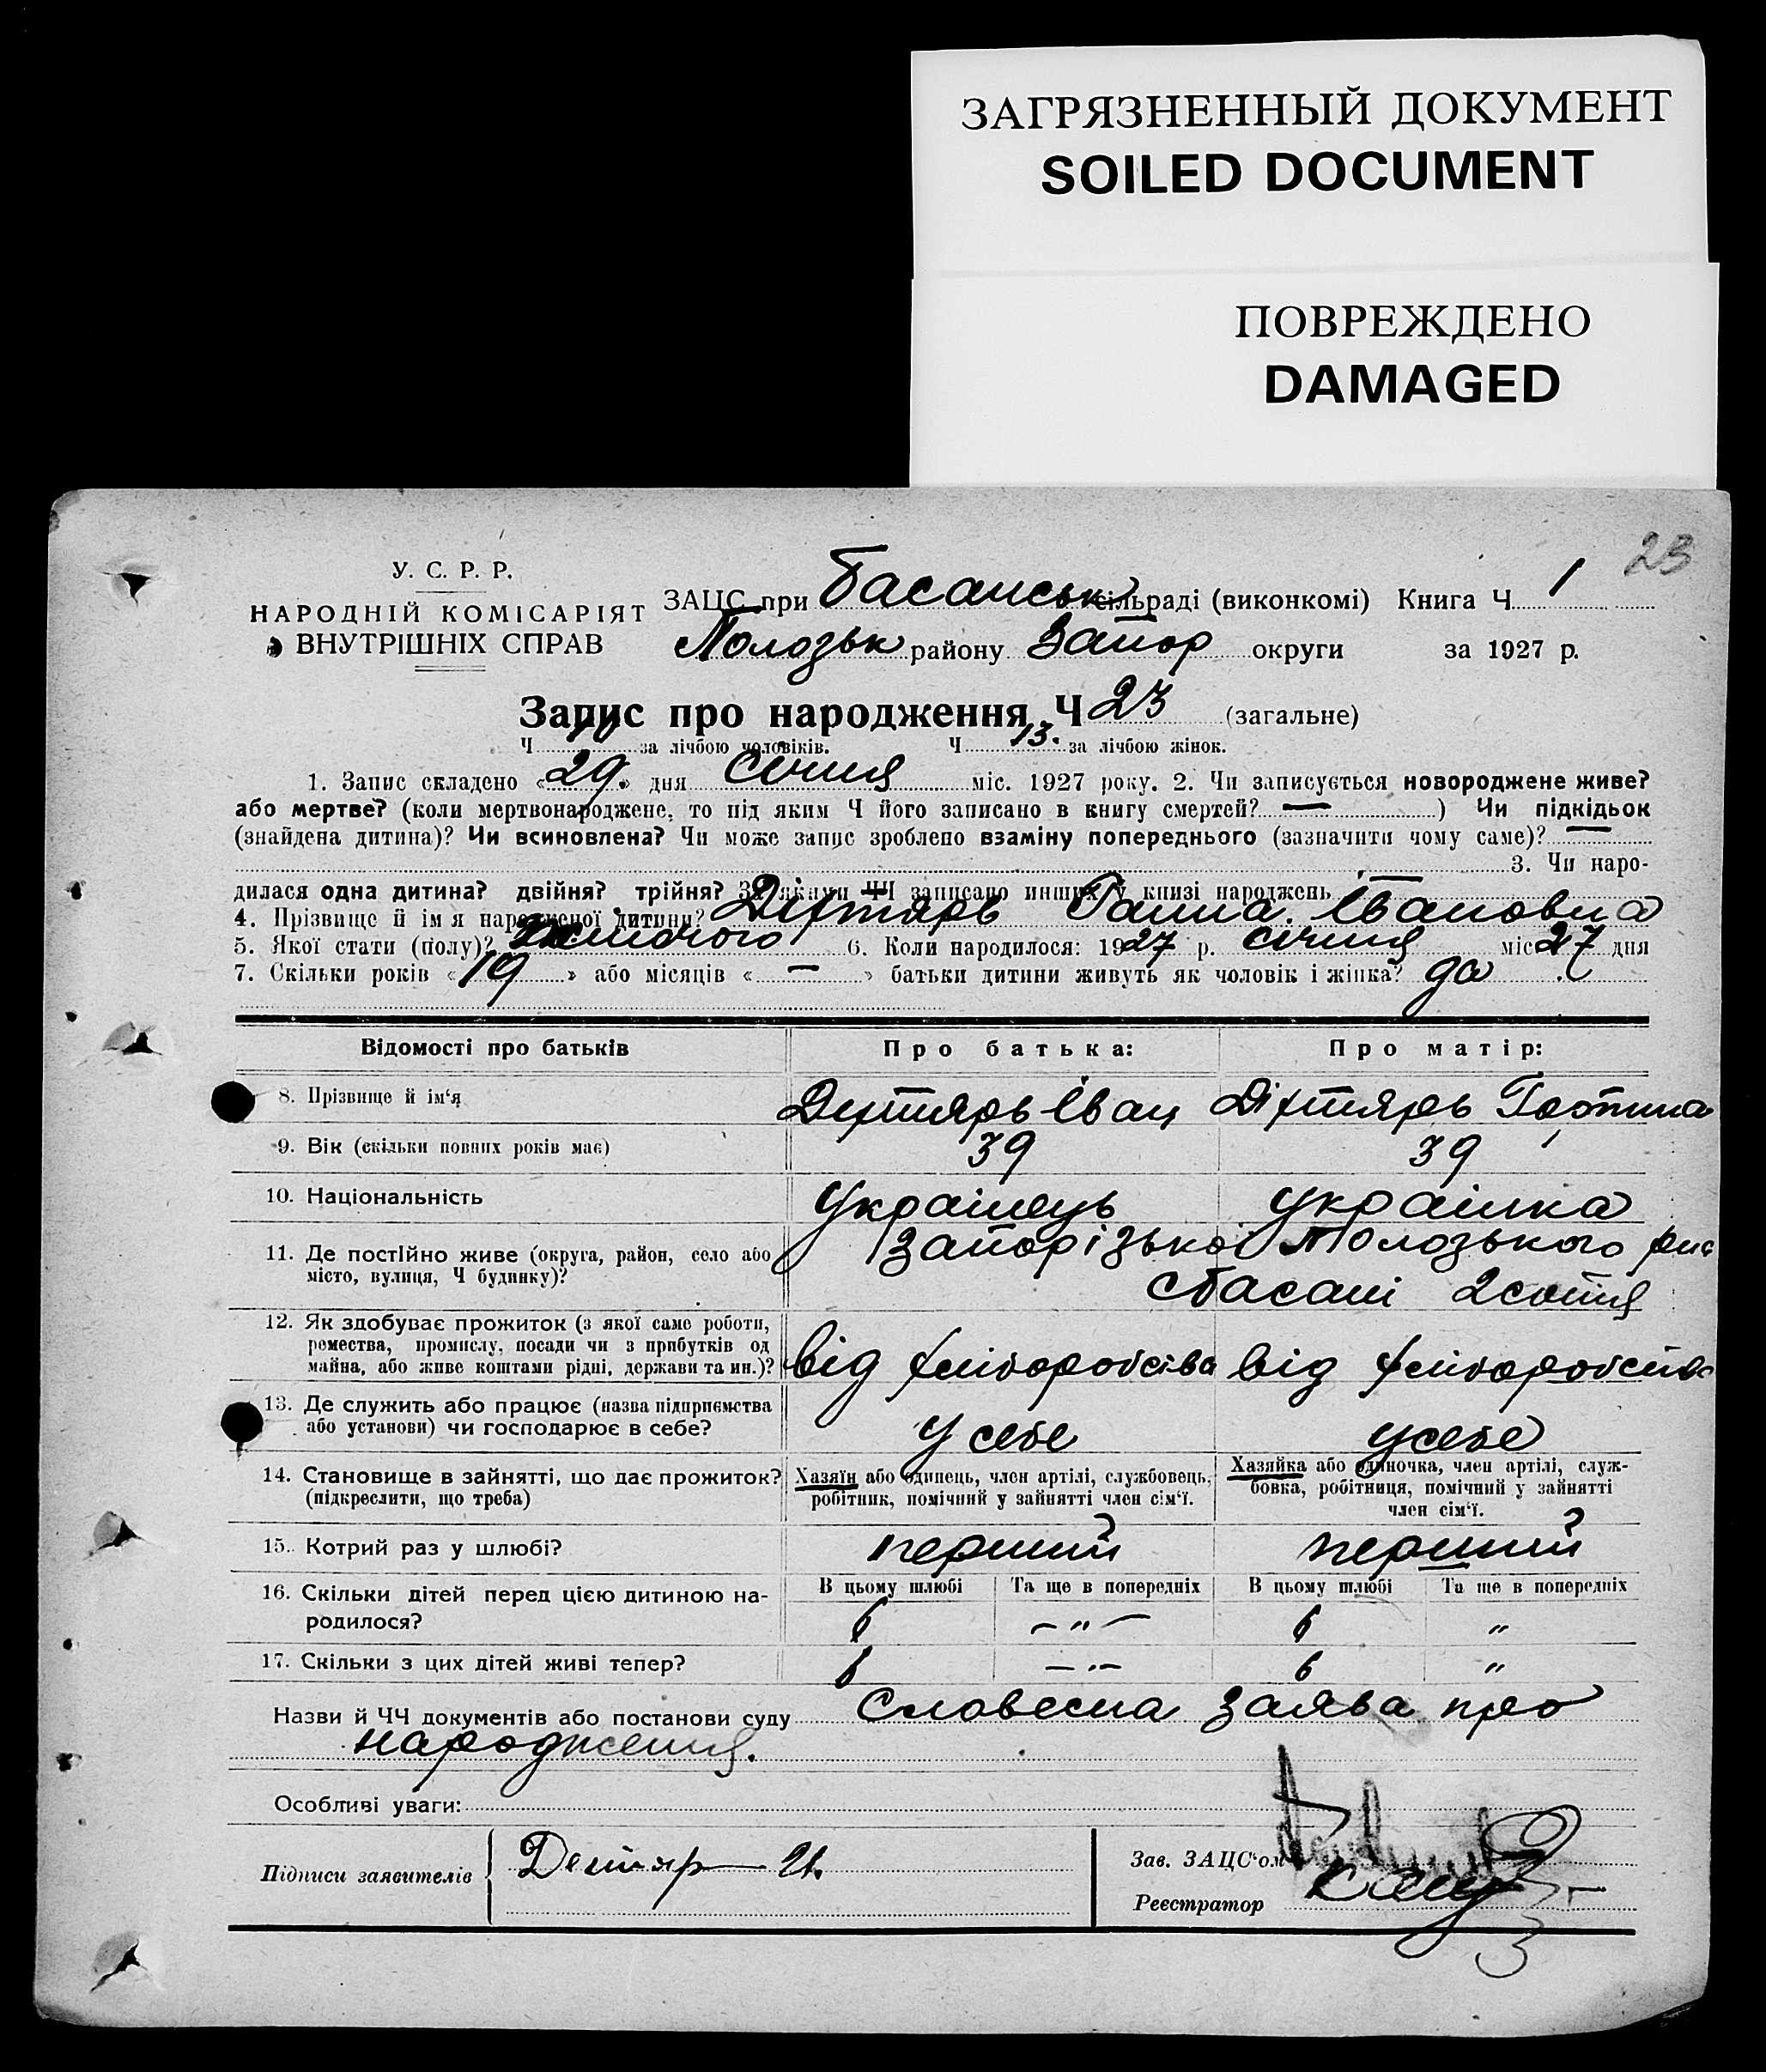 ЗАГРЯЗНЕННЫЙ ДОКУМЕНТ
SOILED DOCUMENT
ПОВРЕЖДЕНО
DAMAGED
23
У. С. Р. Р.
НАРОДНІЙ КОМІСАРІЯТ
ВНУТРІШНІХ СПРАВ
ЗАЦС при Басанськ сільраді (виконкомі) Книга Ч 1
Полозьк району Запор округи за 1927 р.
Запис про народження Ч 23 (загальне)
Ч 10 за лічбою чоловіків. Ч 13. за лічбою жінок.
1. Запис складено «29» дня Січня міс. 1927 року. 2. Чи записується новороджене живе?
або мертве? (коли мертвонароджене, то під яким Ч його записано в книгу смертей? —) Чи підкідьок
(знайдена дитина)? Чи всиновлена? Чи може запис зроблено взаміну попереднього (зазначити чому саме)? —
3. Чи наро-
дилася одна дитина? двійня? трійня? За якими ЧЧ записано инших у книзі народжень —
4. Прізвище й ім я народженої дитини? Діхтярь Ганна Івановна
5. Якої стати (полу)? Жиночого 6. Коли народилося: 1927 р. січня міс 27 дня
7. Скільки років «19» або місяців «—» батьки дитини живуть як чоловік і жінка? да
Відомості про батьків Про батька: Про матір:
8. Прізвище й ім'я Дихтярь Іван Діхтярь
9. Вік (скільки повних років має) 39 39
10. Національність Українець українка
11. Де постійно живе (округа, район, село або Запорізької Полозького
місто, вулиця, Ч будинку)? с Басані 2 сотня
12. Як здобуває прожиток (з якої саме роботи,
ремества, промислу, посади чи з прибутків од
майна, або живе коштами рідні, держави та ин.)? від хліборобства від хліборобства
13. Де служить або працює (назва підприємства
або установи) чи господарює в себе? У себе у себе
14. Становище в зайнятті, що дає прожиток? Хазяїн або одинець, член артілі, службовець, Хазяйка або одиночка, член артілі, служ-
(підкреслити, що треба) робітник, помічний у зайнятті член сім'ї. бовка, робітниця, помічний у зайнятті
член сім'ї.
15. Котрий раз у шлюбі? перший перший
16. Скільки дітей перед цією дитиною на- В цьому шлюбі Та ще в попередніх В цьому шлюбі Та ще в попередніх
родилося? 6 — „ — 6 „
17. Скільки з цих дітей живі тепер? 6 — „ — 6 „
Назви й ЧЧ документів або постанови суду Словесна заява про
народження.
Особливі уваги:
Підписи заявителів Дехтяр И.
Зав. ЗАЦС'ом
Реєстратор